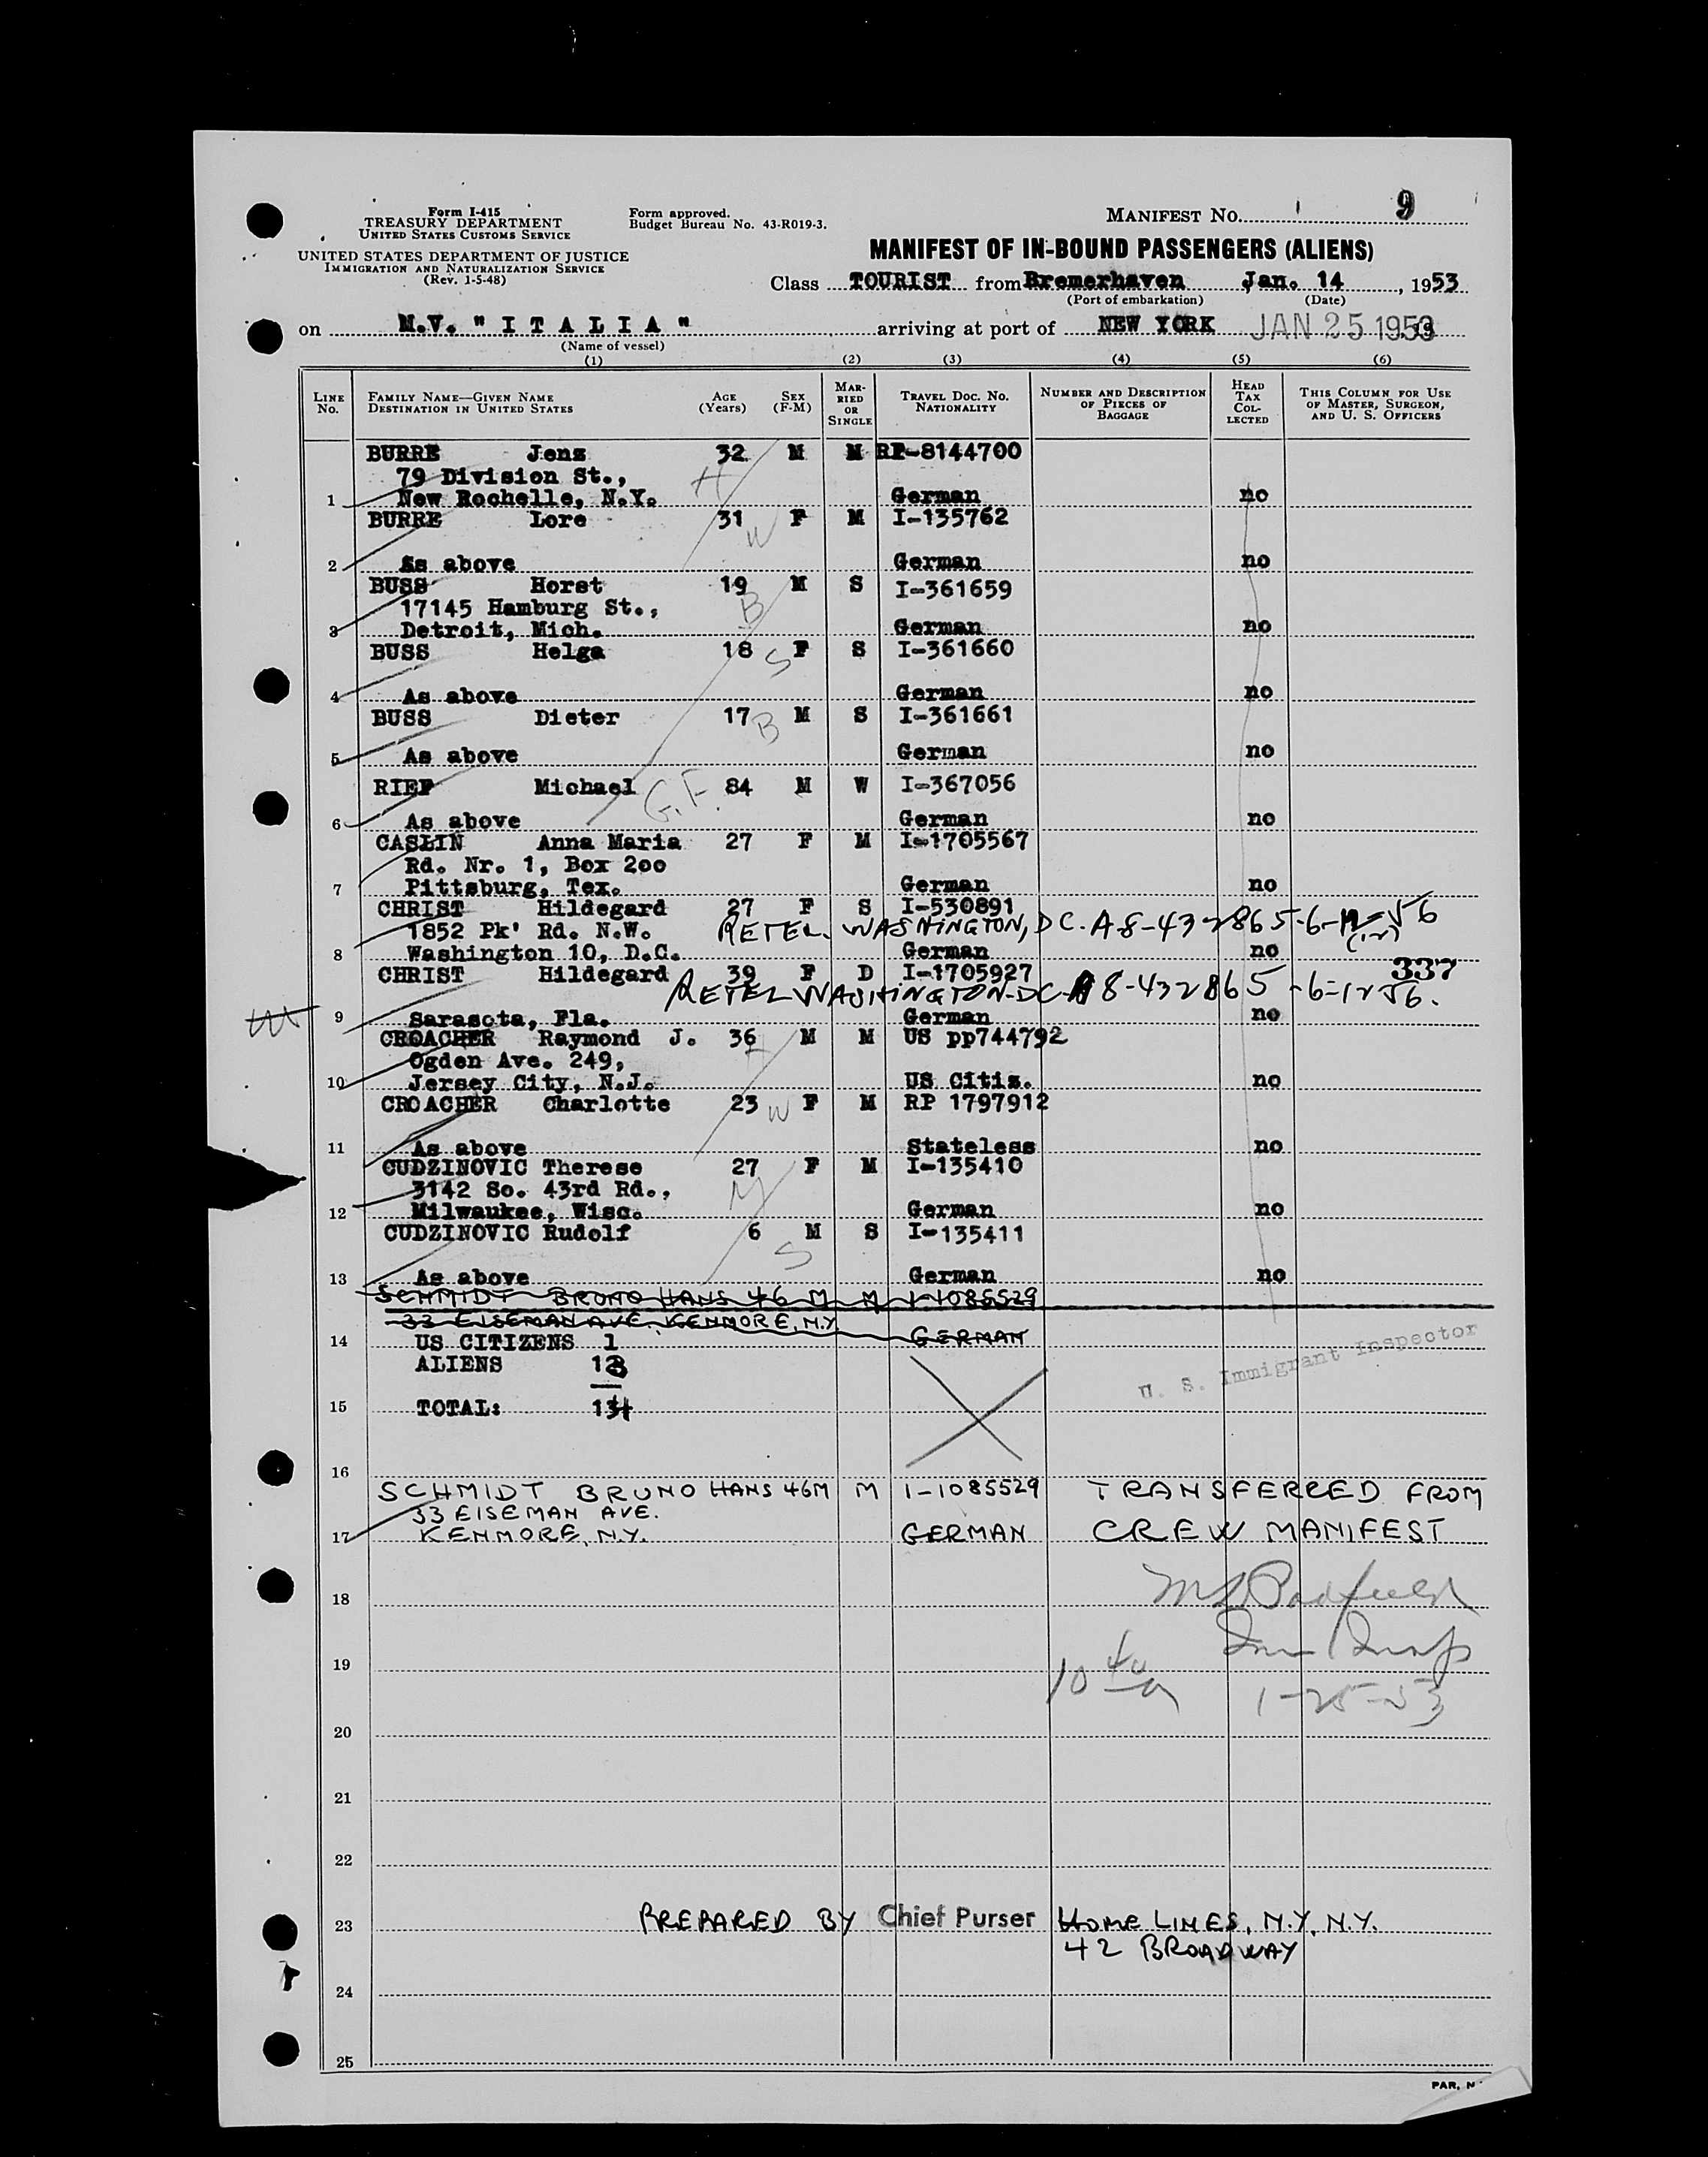 Form I-415
TREASURY DEPARTMENT
UNITED STATES CUSTOMS SERVICE
UNITED STATES DEPARTMENT OF JUSTICE
IMMIGRATION AND NATURALIZATION SERVICE
(Rev. 1-5-48)
Form approved.
Budget Bureau No. 43-R019-3.
MANIFEST NO. 9
MANIFEST OF IN-BOUND PASSENGERS (ALIENS)
Class TOURIST from Bremerhaven Jan. 14, 1953
(Port of embarkation) (Date)
on M.V. "ITALIA" arriving at port of NEW YORK JAN 25 1953
(Name of vessel)
(1) (2) (3) (4) (5) (6)
LINE No. FAMILY NAME—GIVEN NAME DESTINATION IN UNITED STATES AGE (Years) SEX (F-M) MARRIED OR SINGLE TRAVEL DOC. NO. NATIONALITY NUMBER AND DESCRIPTION OF PIECES OF BAGGAGE HEAD TAX COLLECTED THIS COLUMN FOR USE OF MASTER, SURGEON, AND U. S. OFFICERS
BURRE Jens 32 M M RP-8144700
79 Division St., H
1 New Rochelle, N.Y. German no
BURRE Lore 31 W F M I-135762
2 As above German no
BUSS Horst 19 M S I-361659
17145 Hamburg St., B
3 Detroit, Mich. German no
BUSS Helga 18 S F S I-361660
4 As above German no
BUSS Dieter 17 B M S I-361661
5 As above German no
RIEF Michael G.F. 84 M W I-367056
6 As above German no
CASLIN Anna Maria 27 F M I-1705567
Rd. Nr. 1, Box 200
7 Pittsburg, Tex. German no
CHRIST Hildegard 27 F S I-530891
1852 Pk' Rd. N.W. RETEL. WASHINGTON, DC. A-8-432865-6-12-56
8 Washington 10, D.C. German no
CHRIST Hildegard 39 F D I-1705927 337
RETEL WASHINGTON-DC-A8-432865-6-12-56.
9 Sarasota, Fla. German no
CROACHER Raymond J. 36 M M US pp744792
Ogden Ave. 249,
10 Jersey City, N.J. US Citiz. no
CROACHER Charlotte 23 W F M RP 1797912
11 As above Stateless no
CUDZINOVIC Therese 27 F M I-135410
3142 So. 43rd Rd., M
12 Milwaukee, Wisc. German no
CUDZINOVIC Rudolf 6 M S I-135411
S
13 As above German no
SCHMIDT BRUNO HANS 46 M M I-1085529
33 EISEMAN AVE. KENMORE, N.Y. GERMAN
14 US CITIZENS 1
ALIENS 13
U. S. Immigrant Inspector
15 TOTAL: 14
16
SCHMIDT BRUNO HANS 46M M I-1085529 TRANSFERRED FROM
33 EISEMAN AVE.
17 KENMORE, N.Y. GERMAN CREW MANIFEST
18
19
1-25-53
20
21
22
23 PREPARED BY Chief Purser HOME LINES, N.Y. N.Y.
42 BROADWAY
24
25
PAR. N